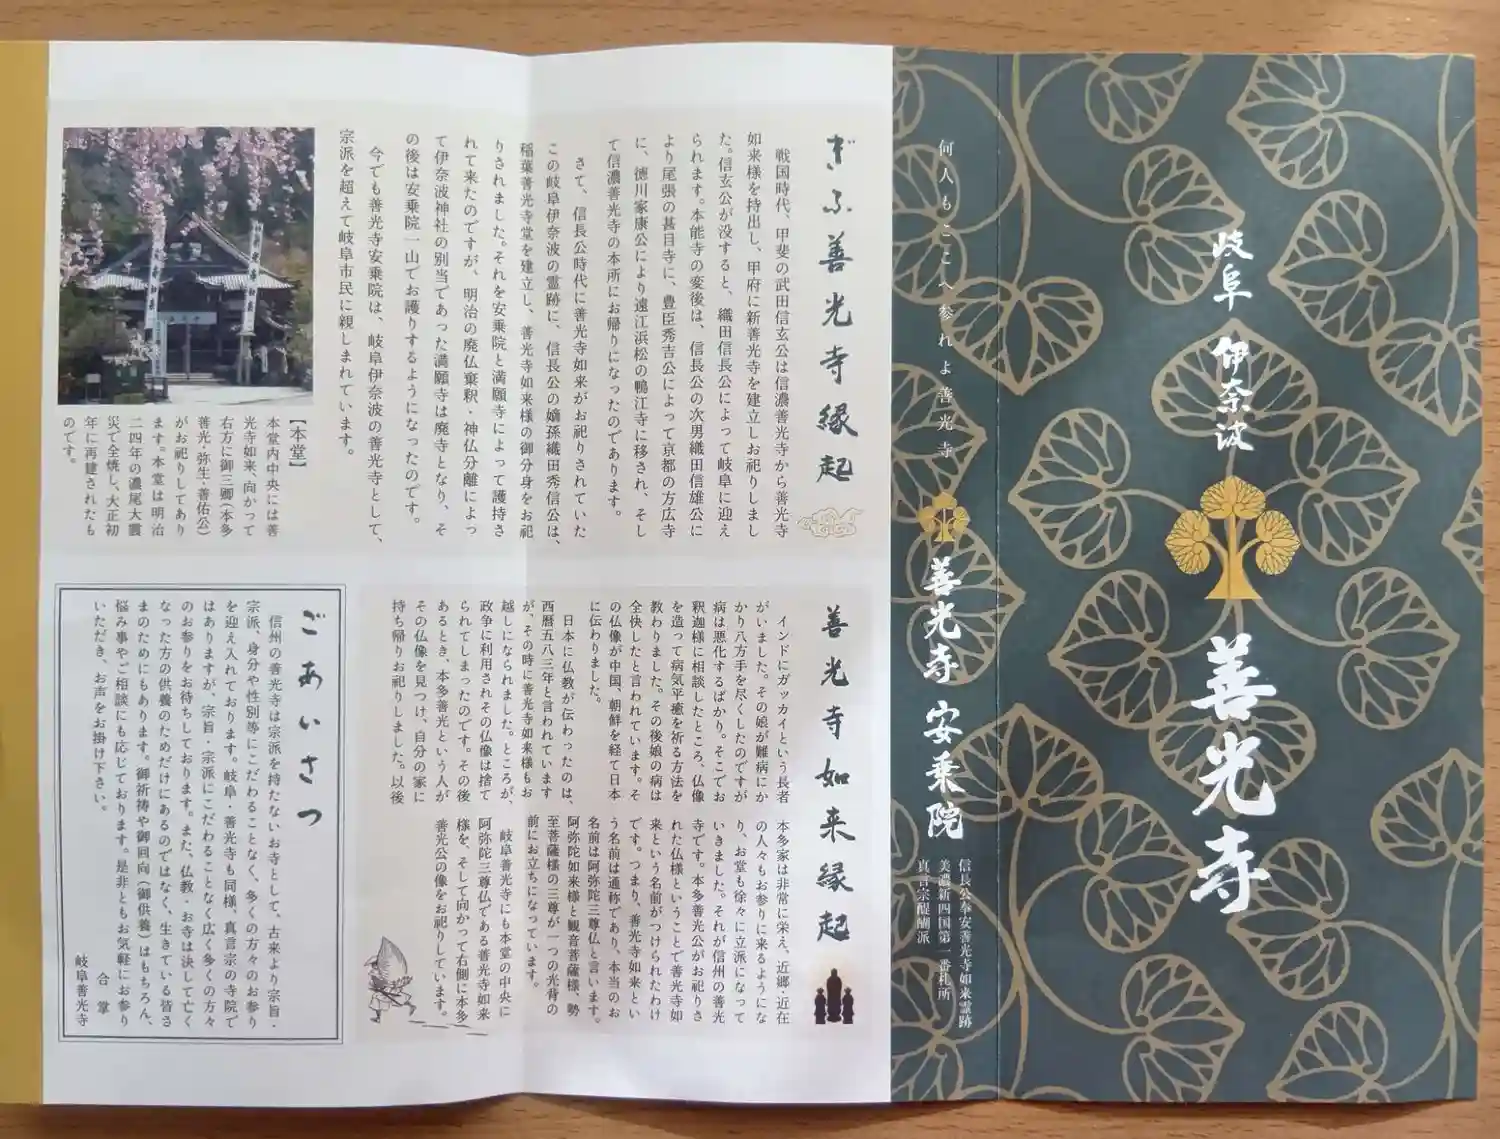 岐阜 伊奈波
善光寺
何人もここへ参れよ善光寺
善光寺 安乗院
信長公奉安善光寺如来霊跡
美濃新四国第一番札所
真言宗醍醐派
ぎふ善光寺縁起
戦国時代、甲斐の武田信玄公は信濃善光寺から善光寺
如来様を持出し、甲府に新善光寺を建立しお祀りしまし
た。信玄公が没すると、織田信長公によって岐阜に迎え
られます。本能寺の変後は、信長公の次男織田信雄公に
より尾張の甚目寺に、豊臣秀吉公によって京都の方広寺
に、徳川家康公により遠江浜松の鴨江寺に移され、そし
て信濃善光寺の本所にお帰りになったのであります。
さて、信長公時代に善光寺如来がお祀りされていた
この岐阜伊奈波の霊跡に、信長公の嫡孫織田秀信公は、
稲葉善光寺堂を建立し、善光寺如来様の御分身をお祀
りされました。それを安乗院と満願寺によって護持さ
れて来たのですが、明治の廃仏棄釈・神仏分離によっ
て伊奈波神社の別当であった満願寺は廃寺となり、そ
の後は安乗院一山でお護りするようになったのです。
今でも善光寺安乗院は、岐阜伊奈波の善光寺として、
宗派を超えて岐阜市民に親しまれています。
【本堂】
本堂内中央には善
光寺如来、向かって
右方に御三卿(本多
善光・弥生・善佑公)
がお祀りしてあり
ます。本堂は明治
二四年の濃尾大震
災で全焼し、大正初
年に再建されたも
のです。
善光寺如来縁起
インドにガッカイという長者
がいました。その娘が難病にか
かり八方手を尽くしたのですが
病は悪化するばかり。そこでお
釈迦様に相談したところ、仏像
を造って病気平癒を祈る方法を
教わりました。その後娘の病は
全快したと言われています。そ
の仏像が中国、朝鮮を経て日本
に伝わりました。
日本に仏教が伝わったのは、
西暦五八三年と言われています
が、その時に善光寺如来様もお
越しになられました。ところが、
政争に利用されその仏像は捨て
られてしまったのです。その後
あるとき、本多善光という人が
その仏像を見つけ、自分の家に
持ち帰りお祀りしました。以後
本多家は非常に栄え、近郷・近在
の人々もお参りに来るようにな
り、お堂も徐々に立派になって
いきました。それが信州の善光
寺です。本多善光公がお祀りさ
れた仏様ということで善光寺如
来という名前がつけられたわけ
です。つまり、善光寺如来とい
う名前は通称であり、本当のお
名前は阿弥陀三尊仏と言います。
阿弥陀如来様と観音菩薩様、勢
至菩薩様の三尊が一つの光背の
前にお立ちになっています。
岐阜善光寺にも本堂の中央に
阿弥陀三尊仏である善光寺如来
様を、そして向かって右側に本多
善光公の像をお祀りしています。
ごあいさつ
信州の善光寺は宗派を持たないお寺として、古来より宗旨・
宗派、身分や性別等にこだわることなく、多くの方々のお参り
を迎え入れております。岐阜・善光寺も同様、真言宗の寺院で
はありますが、宗旨・宗派にこだわることなく広く多くの方々
のお参りをお待ちしております。また、仏教・お寺は決して亡く
なった方の供養のためだけにあるのではなく、生きている皆さ
まのためにもあります。御祈祷や御回向(御供養)はもちろん、
悩み事やご相談にも応じております。是非ともお気軽にお参り
いただき、お声をお掛け下さい。
合掌
岐阜善光寺